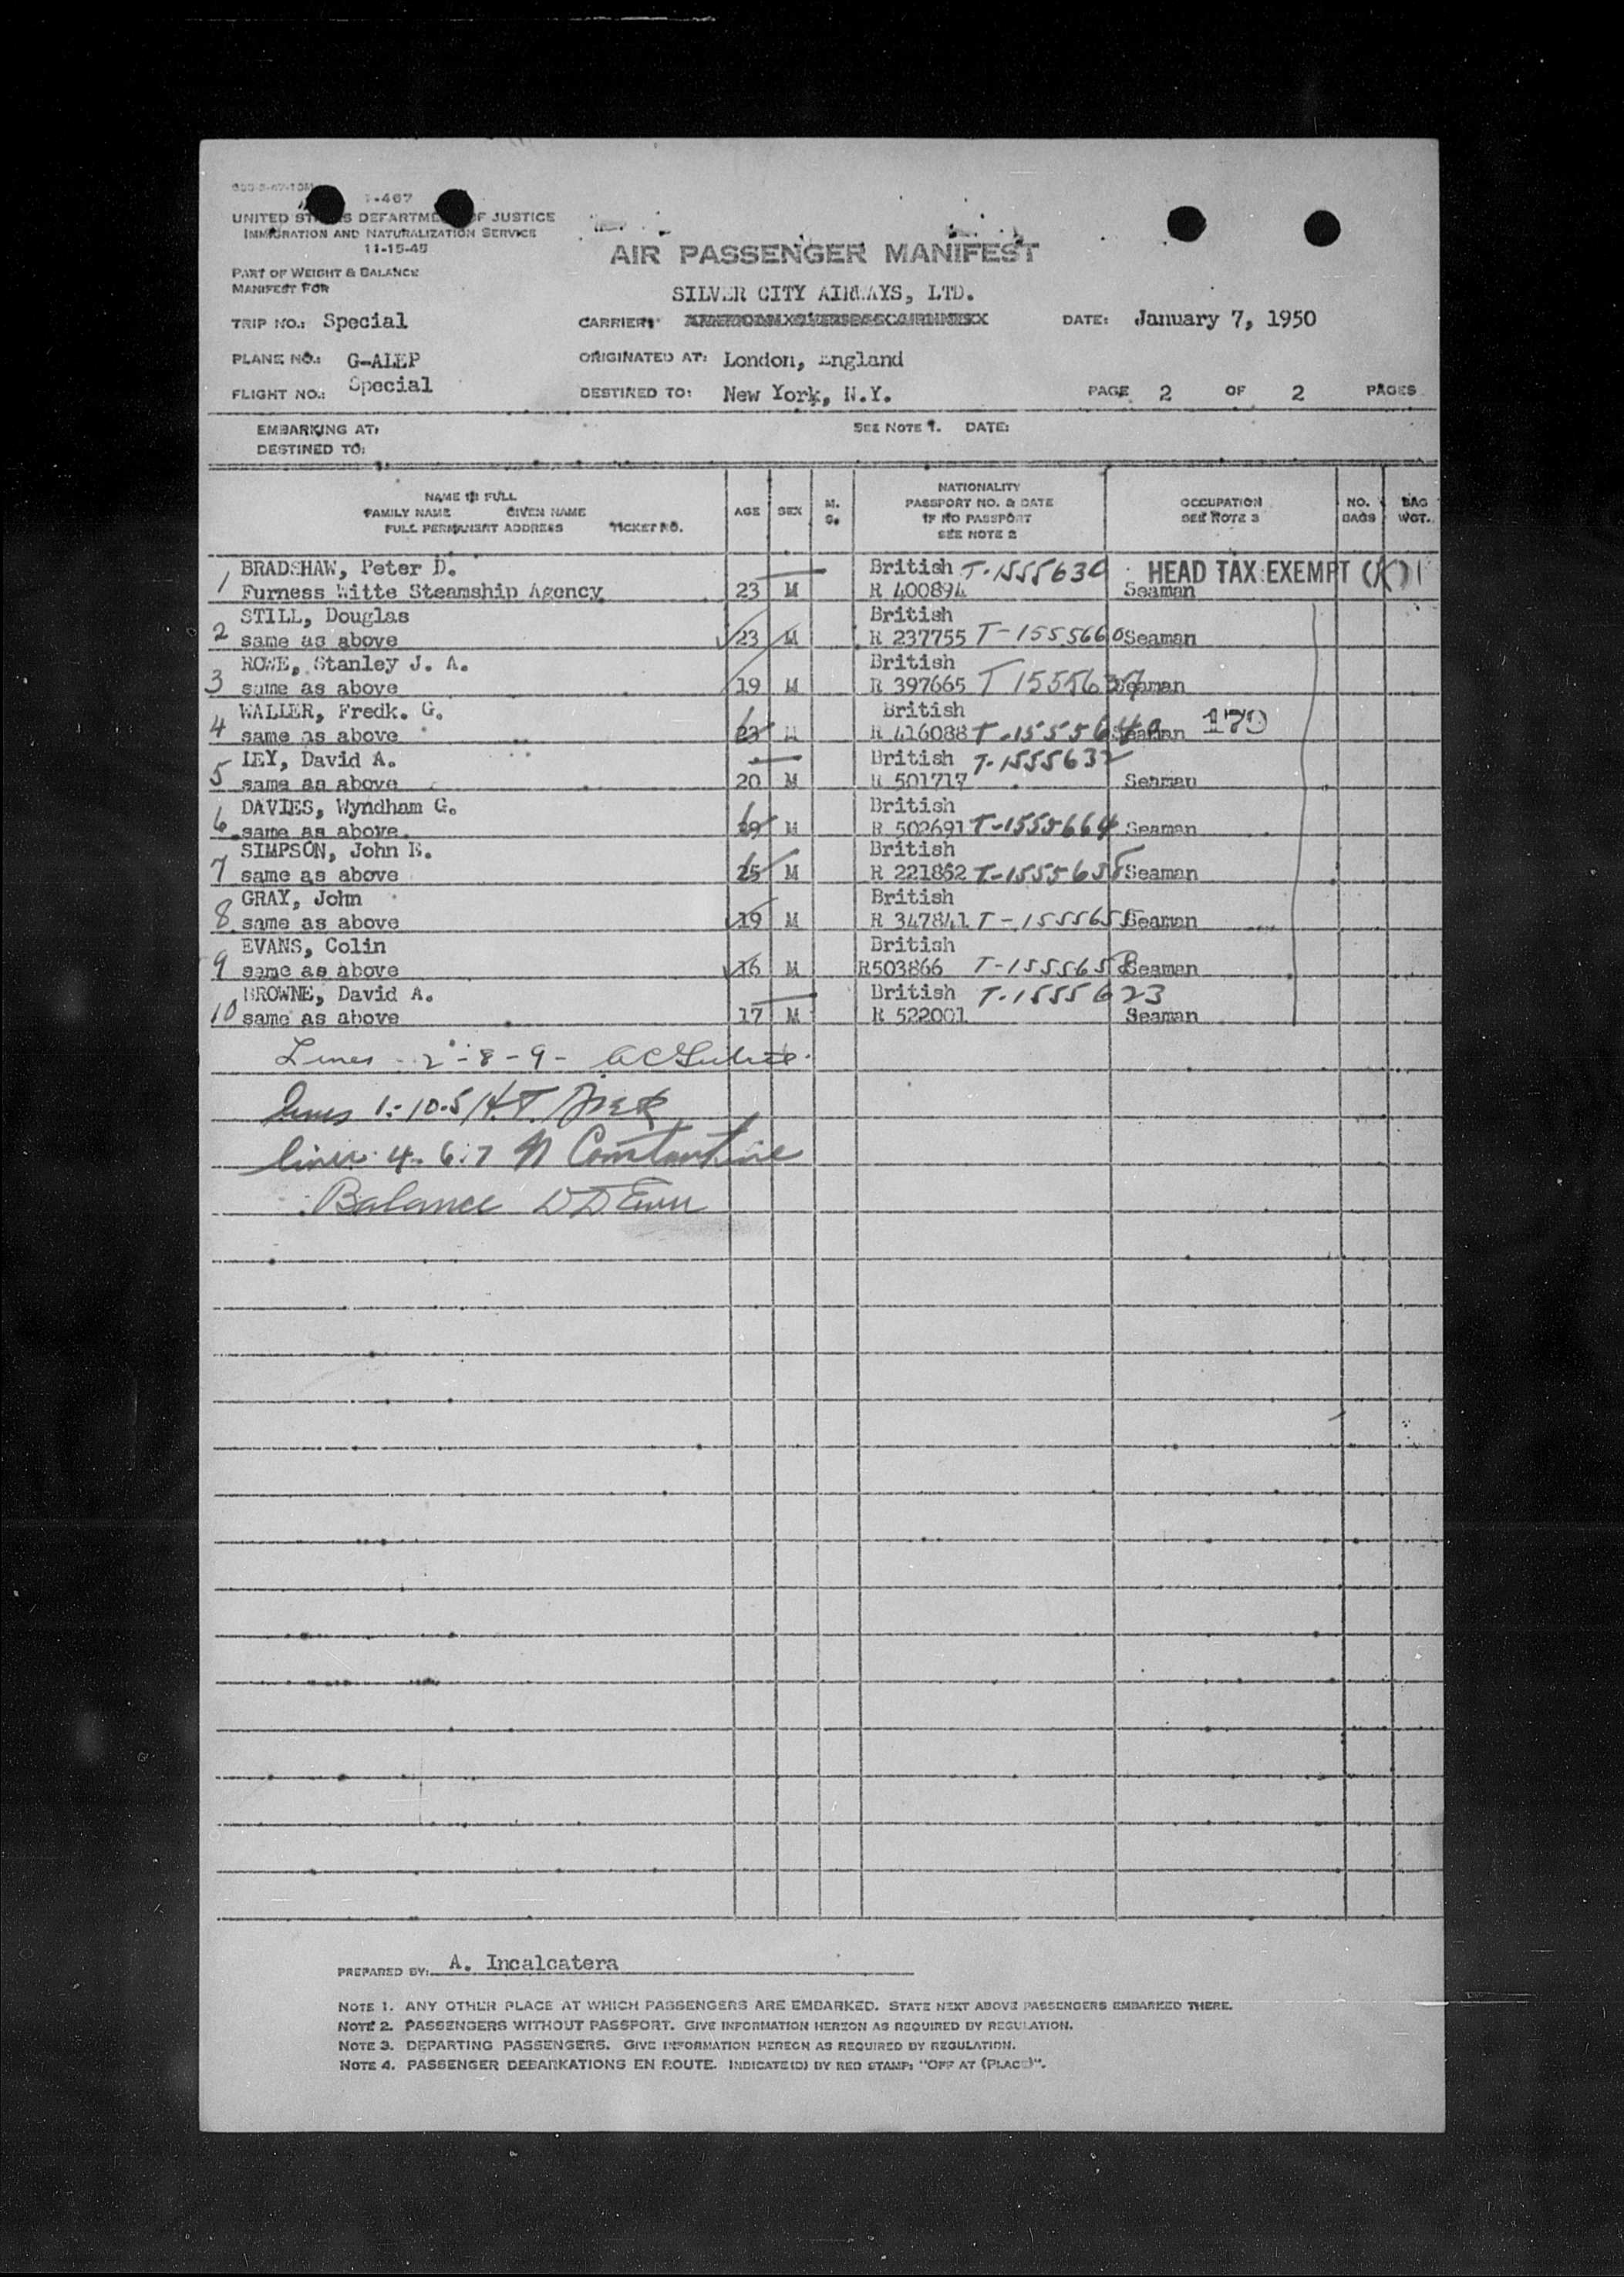 I-467
UNITED STATES DEPARTMENT OF JUSTICE
IMMIGRATION AND NATURALIZATION SERVICE
11-15-45
PART OF WEIGHT & BALANCE
MANIFEST FOR
AIR PASSENGER MANIFEST
SILVER CITY AIRWAYS, LTD.
TRIP NO.: Special CARRIER: DATE: January 7, 1950
PLANE NO.: G-ALEP ORIGINATED AT: London, England
FLIGHT NO.: Special DESTINED TO: New York, N.Y. PAGE 2 OF 2 PAGES
EMBARKING AT: SEE NOTE 1. DATE:
DESTINED TO:
NAME IN FULL
FAMILY NAME GIVEN NAME
FULL PERMANENT ADDRESS TICKET NO.
AGE SEX M. S.
NATIONALITY
PASSPORT NO. & DATE
IF NO PASSPORT
SEE NOTE 2
OCCUPATION
SEE NOTE 3
NO. BAGS
BAG WGT.
BRADSHAW, Peter D. British T-1555630 HEAD TAX EXEMPT
1 Furness Witte Steamship Agency 23 M R 400894 Seaman
STILL, Douglas British
2 same as above 23 M R 237755 T-1555660 Seaman
ROWE, Stanley J. A. British
3 same as above 19 M R 397665 Seaman
WALLER, Fredk. G. British
4 same as above 23 M R 416088 Seaman 179
IEY, David A. British T-1555632
5 same as above 20 M R 501717 Seaman
DAVIES, Wyndham G. British
6 same as above 29 M R 502691 T-1555664 Seaman
SIMPSON, John E. British
7 same as above 25 M R 221862 T-1555635 Seaman
GRAY, John British
8 same as above 19 M R 347841 T-1555655 Seaman
EVANS, Colin British
9 same as above 16 M R503866 T-1555658 Seaman
BROWNE, David A. British T-1555623
10 same as above 17 M R 522001 Seaman
Lines - 2 - 8 - 9 -
lines 1-10-5
lines 4-6-7 N Constantine
Balance
PREPARED BY: A. Incalcatera
NOTE 1. ANY OTHER PLACE AT WHICH PASSENGERS ARE EMBARKED. STATE NEXT ABOVE PASSENGERS EMBARKED THERE.
NOTE 2. PASSENGERS WITHOUT PASSPORT. GIVE INFORMATION HEREON AS REQUIRED BY REGULATION.
NOTE 3. DEPARTING PASSENGERS. GIVE INFORMATION HEREON AS REQUIRED BY REGULATION.
NOTE 4. PASSENGER DEBARKATIONS EN ROUTE. INDICATE(D) BY RED STAMP: "OFF AT (PLACE)".